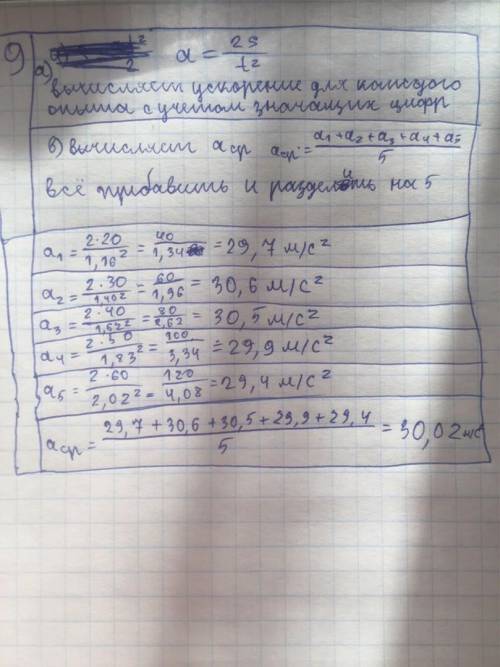 9
а) a = 2S / t²
вычисляет ускорение для каждого
опыта с учетом значащих цифр
в) вычисляет aср aср. = a1 + a2 + a3 + a4 + a5 / 5
всё прибавить и разделить на 5
a1 = 2·20 / 1,16² = 40 / 1,34 = 29,7 м/с²
a2 = 2·30 / 1,40² = 60 / 1,96 = 30,6 м/с²
a3 = 2·40 / 1,62² = 80 / 2,62 = 30,5 м/с²
a4 = 2·50 / 1,83² = 100 / 3,34 = 29,9 м/с²
a5 = 2·60 / 2,02² = 120 / 4,08 = 29,4 м/с²
aср = 29,7 + 30,6 + 30,5 + 29,9 + 29,4 / 5 = 30,02 м/с